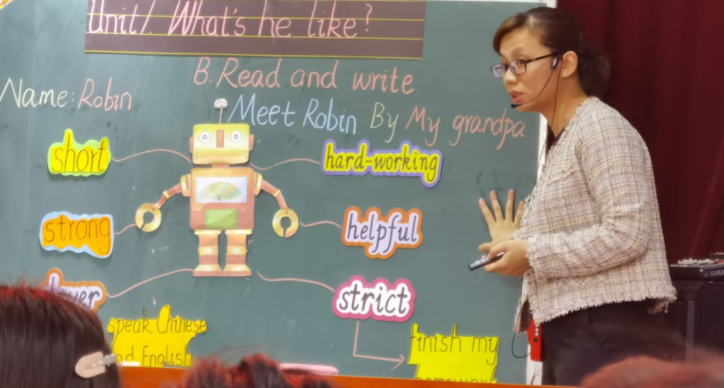 Unit 1. What's he like?
B. Read and write
Name: Robin
Meet Robin By My grandpa
short
hard-working
strong
helpful
strict
speak Chinese
and English
finish my
homework